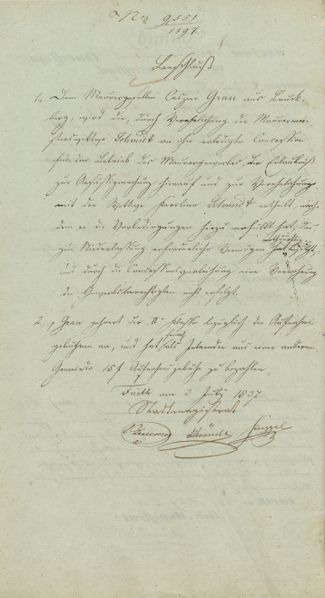 No 9551
1897.
Beschluß
1, Dem Maurergesellen Caspar Gran aus Bruck-
berg, wird die, durch Verehelichung der Maurermei-
sterswittwe Schmidt an ihn erledigte Concession
für den Betrieb des Maurergewerbes, die Erlaubniß
zur Ansässigmachung hierauf und zur Verehelichung
mit der Wittwe Schmidt ertheilt, nach-
dem er die Vorbedingungen hiezu erfüllt hat, das
zur Niederlassung erforderliche Vermögen
und durch die eine Vermehrung
der nicht erfolgt.
2, Gran gehört der II. Klasse bezüglich der Aufnahms-
gebühren an, und hat als aus einer anderen
Gemeinde 15 f Aufnahmsgebühr zu bezahlen
Fürth am 3 Juli 1837
Stadtmagistrat